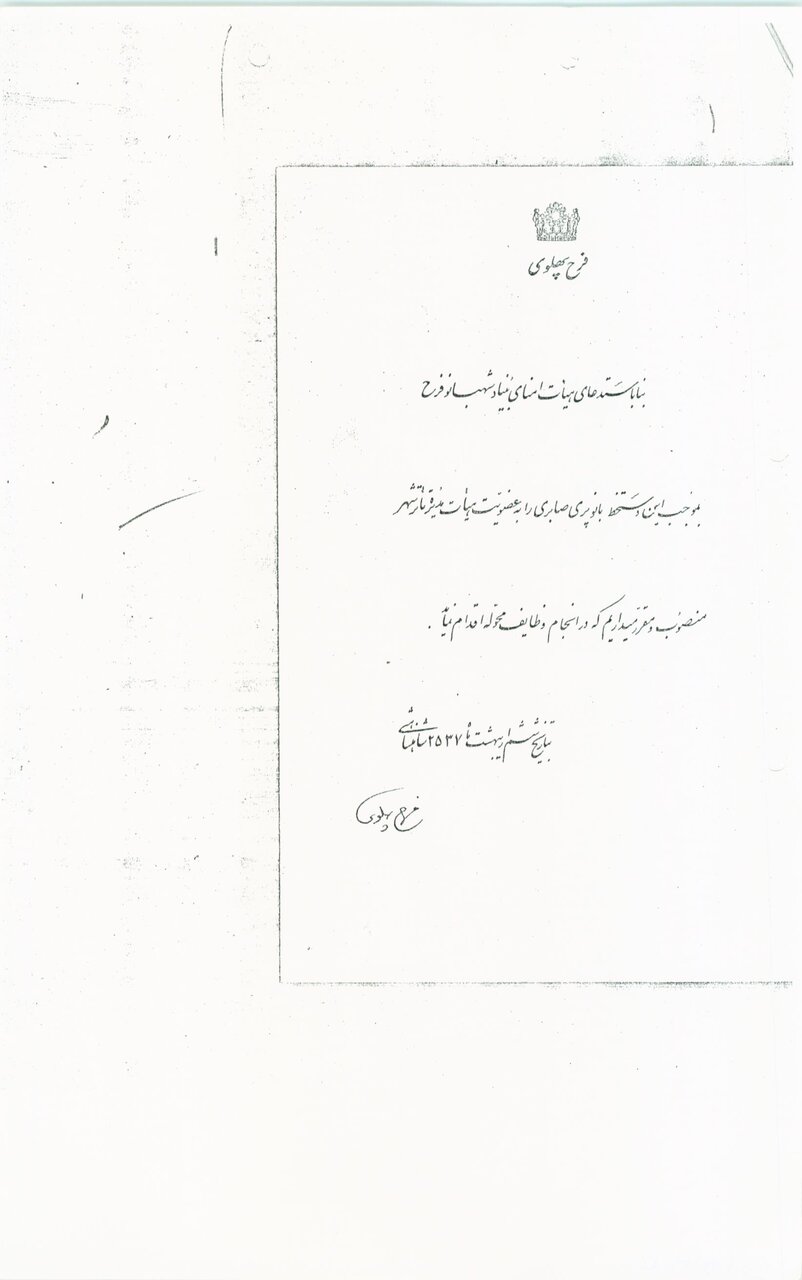 فرح پهلوی
بنا باستدعای هیأت امنای بنیاد شهبانو فرح
بموجب این دستخط بانو پری صابری را به عضویت هیأت مدیره تاتر شهر
منصوب و مقرر میداریم که در انجام وظایف محوله اقدام نماید .
بتاریخ ششم اردیبهشت ماه ۲۵۳۷ شاهنشاهی
فرح پهلوی